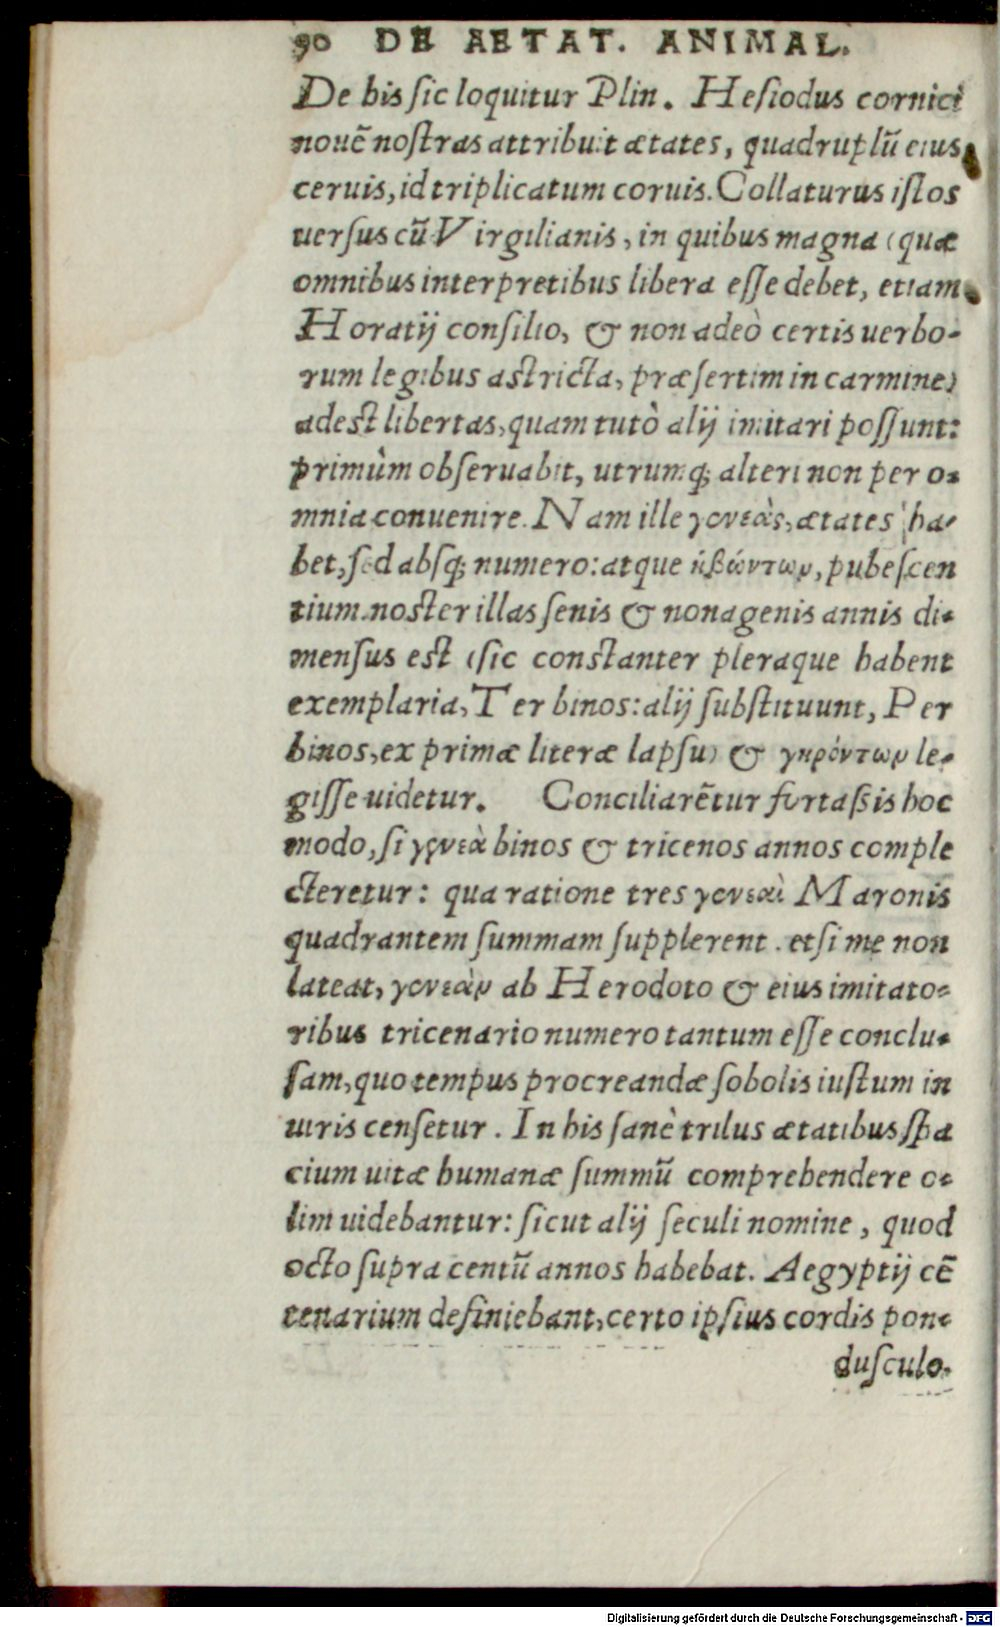 90 DE AETAT. ANIMAL.
De his sic loquitur Plin. Hesiodus cornici
nouẽ nostras attribuit ætates, quadruplũ eius
ceruis, id triplicatum coruis. Collaturus istos
uersus cũ Virgilianis, in quibus magna (quæ
omnibus interpretibus libera esse debet, etiam
Horatij consilio, & non adeò certis uerbo-
rum legibus astricta, præsertim in carmine)
adest libertas, quam tutò alij imitari possunt:
primùm obseruabit, utrumq; alteri non per o-
mnia conuenire. Nam ille γενεὰς, ætates ha-
bet, sed absq; numero: atque ἡβώντων, pubescen
tium. noster illas senis & nonagenis annis di-
mensus est (sic constanter pleraque habent
exemplaria, Ter binos: alij substituunt, Per
binos, ex primæ literæ lapsu) & γηρόντων le-
gisse uidetur. Conciliarẽtur fortaßis hoc
modo, si γενεὰ binos & tricenos annos comple
cteretur: qua ratione tres γενεαὶ Maronis
quadrantem summam supplerent. etsi me non
lateat, γενεὰν ab Herodoto & eius imitato-
ribus tricenario numero tantum esse conclu-
sam, quo tempus procreandæ sobolis iustum in
uiris censetur. In his sanè tribus ætatibus spa
cium uitæ humanæ summũ comprehendere o-
lim uidebantur: sicut alij seculi nomine, quod
octo supra centũ annos habebat. Aegyptij cẽ
tenarium definiebant, certo ipsius cordis pon-
dusculo.
Digitalisierung gefördert durch die Deutsche Forschungsgemeinschaft - DFG